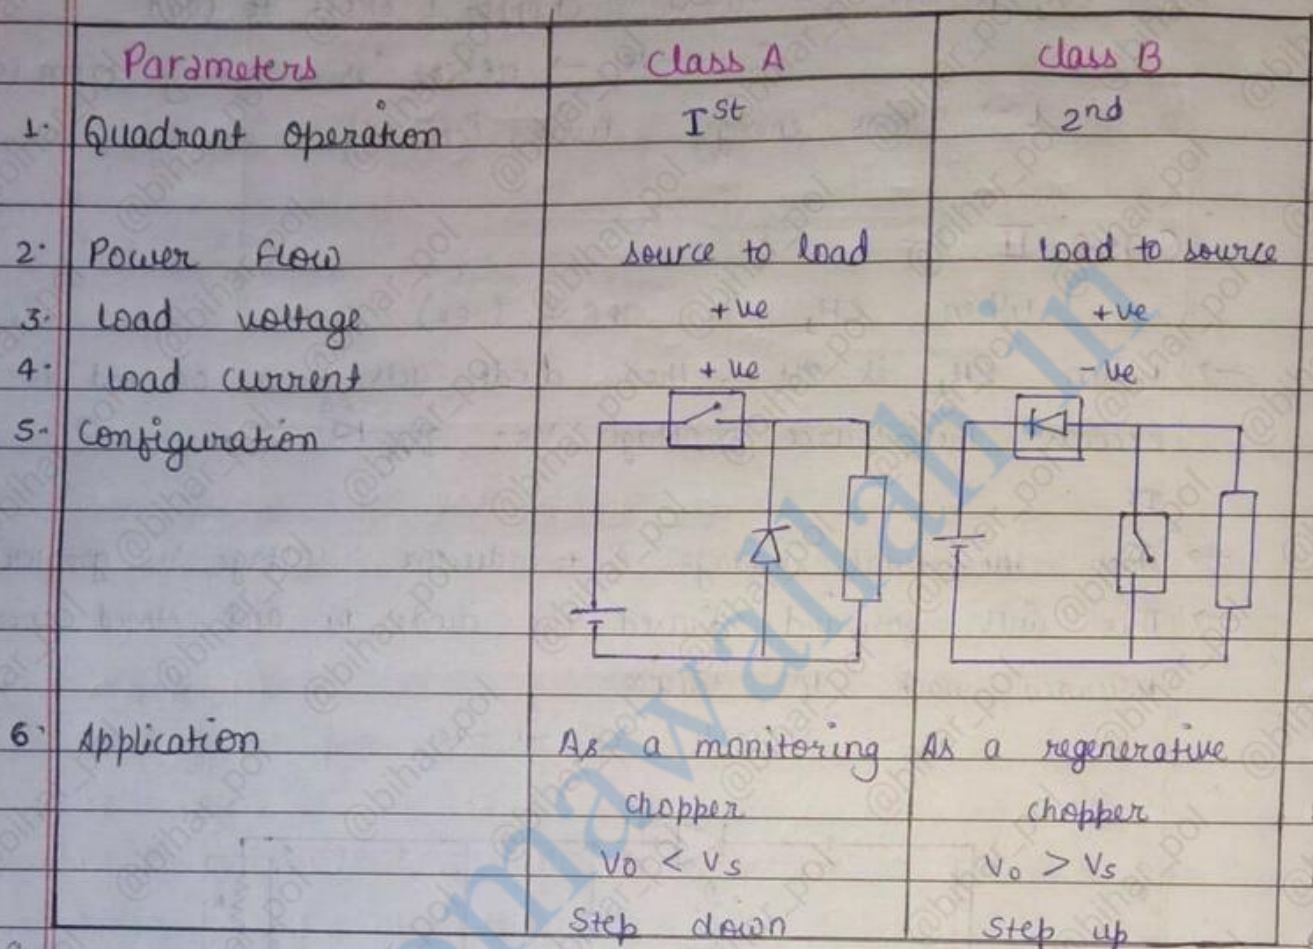 Parameters Class A Class B
1. Quadrant operation Ist 2nd
2. Power flow source to load Load to source
3. Load voltage +ve +ve
4. Load current +ve -ve
5. Configuration
6. Application As a monitoring As a regenerative
chopper chopper
Vo < Vs Vo > Vs
Step down Step up
@bihar_pol